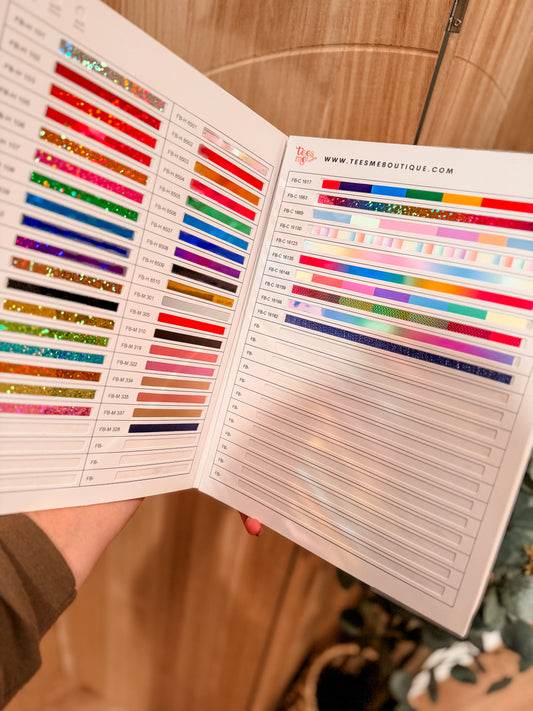 FB-H 101
FB-H 102
FB-H 103
FB-H 105
FB-H 106
107
108
109
FB-H 8501
FB-H 8502
FB-H 8503
FB-H 8504
FB-H 8505
FB-H 8506
FB-H 8507
FB-H 8508
FB-H 8509
FB-H 8510
FB-M 301
FB-M 305
FB-M 310
FB-M 319
FB-M 322
FB-M 334
FB-M 335
FB-M 337
FB-M 328
FB-
FB-
FB-
tees
me
WWW.TEESMEBOUTIQUE.COM
FB-C 1617
FB-C 1663
FB-C 1669
FB-C 16100
FB-C 16123
FB-C 16135
FB-C 16148
FB-C 16159
FB-C 16166
FB-C 16192
FB-
FB-
FB-
FB-
FB-
FB-
FB-
FB-
FB-
FB-
FB-
FB-